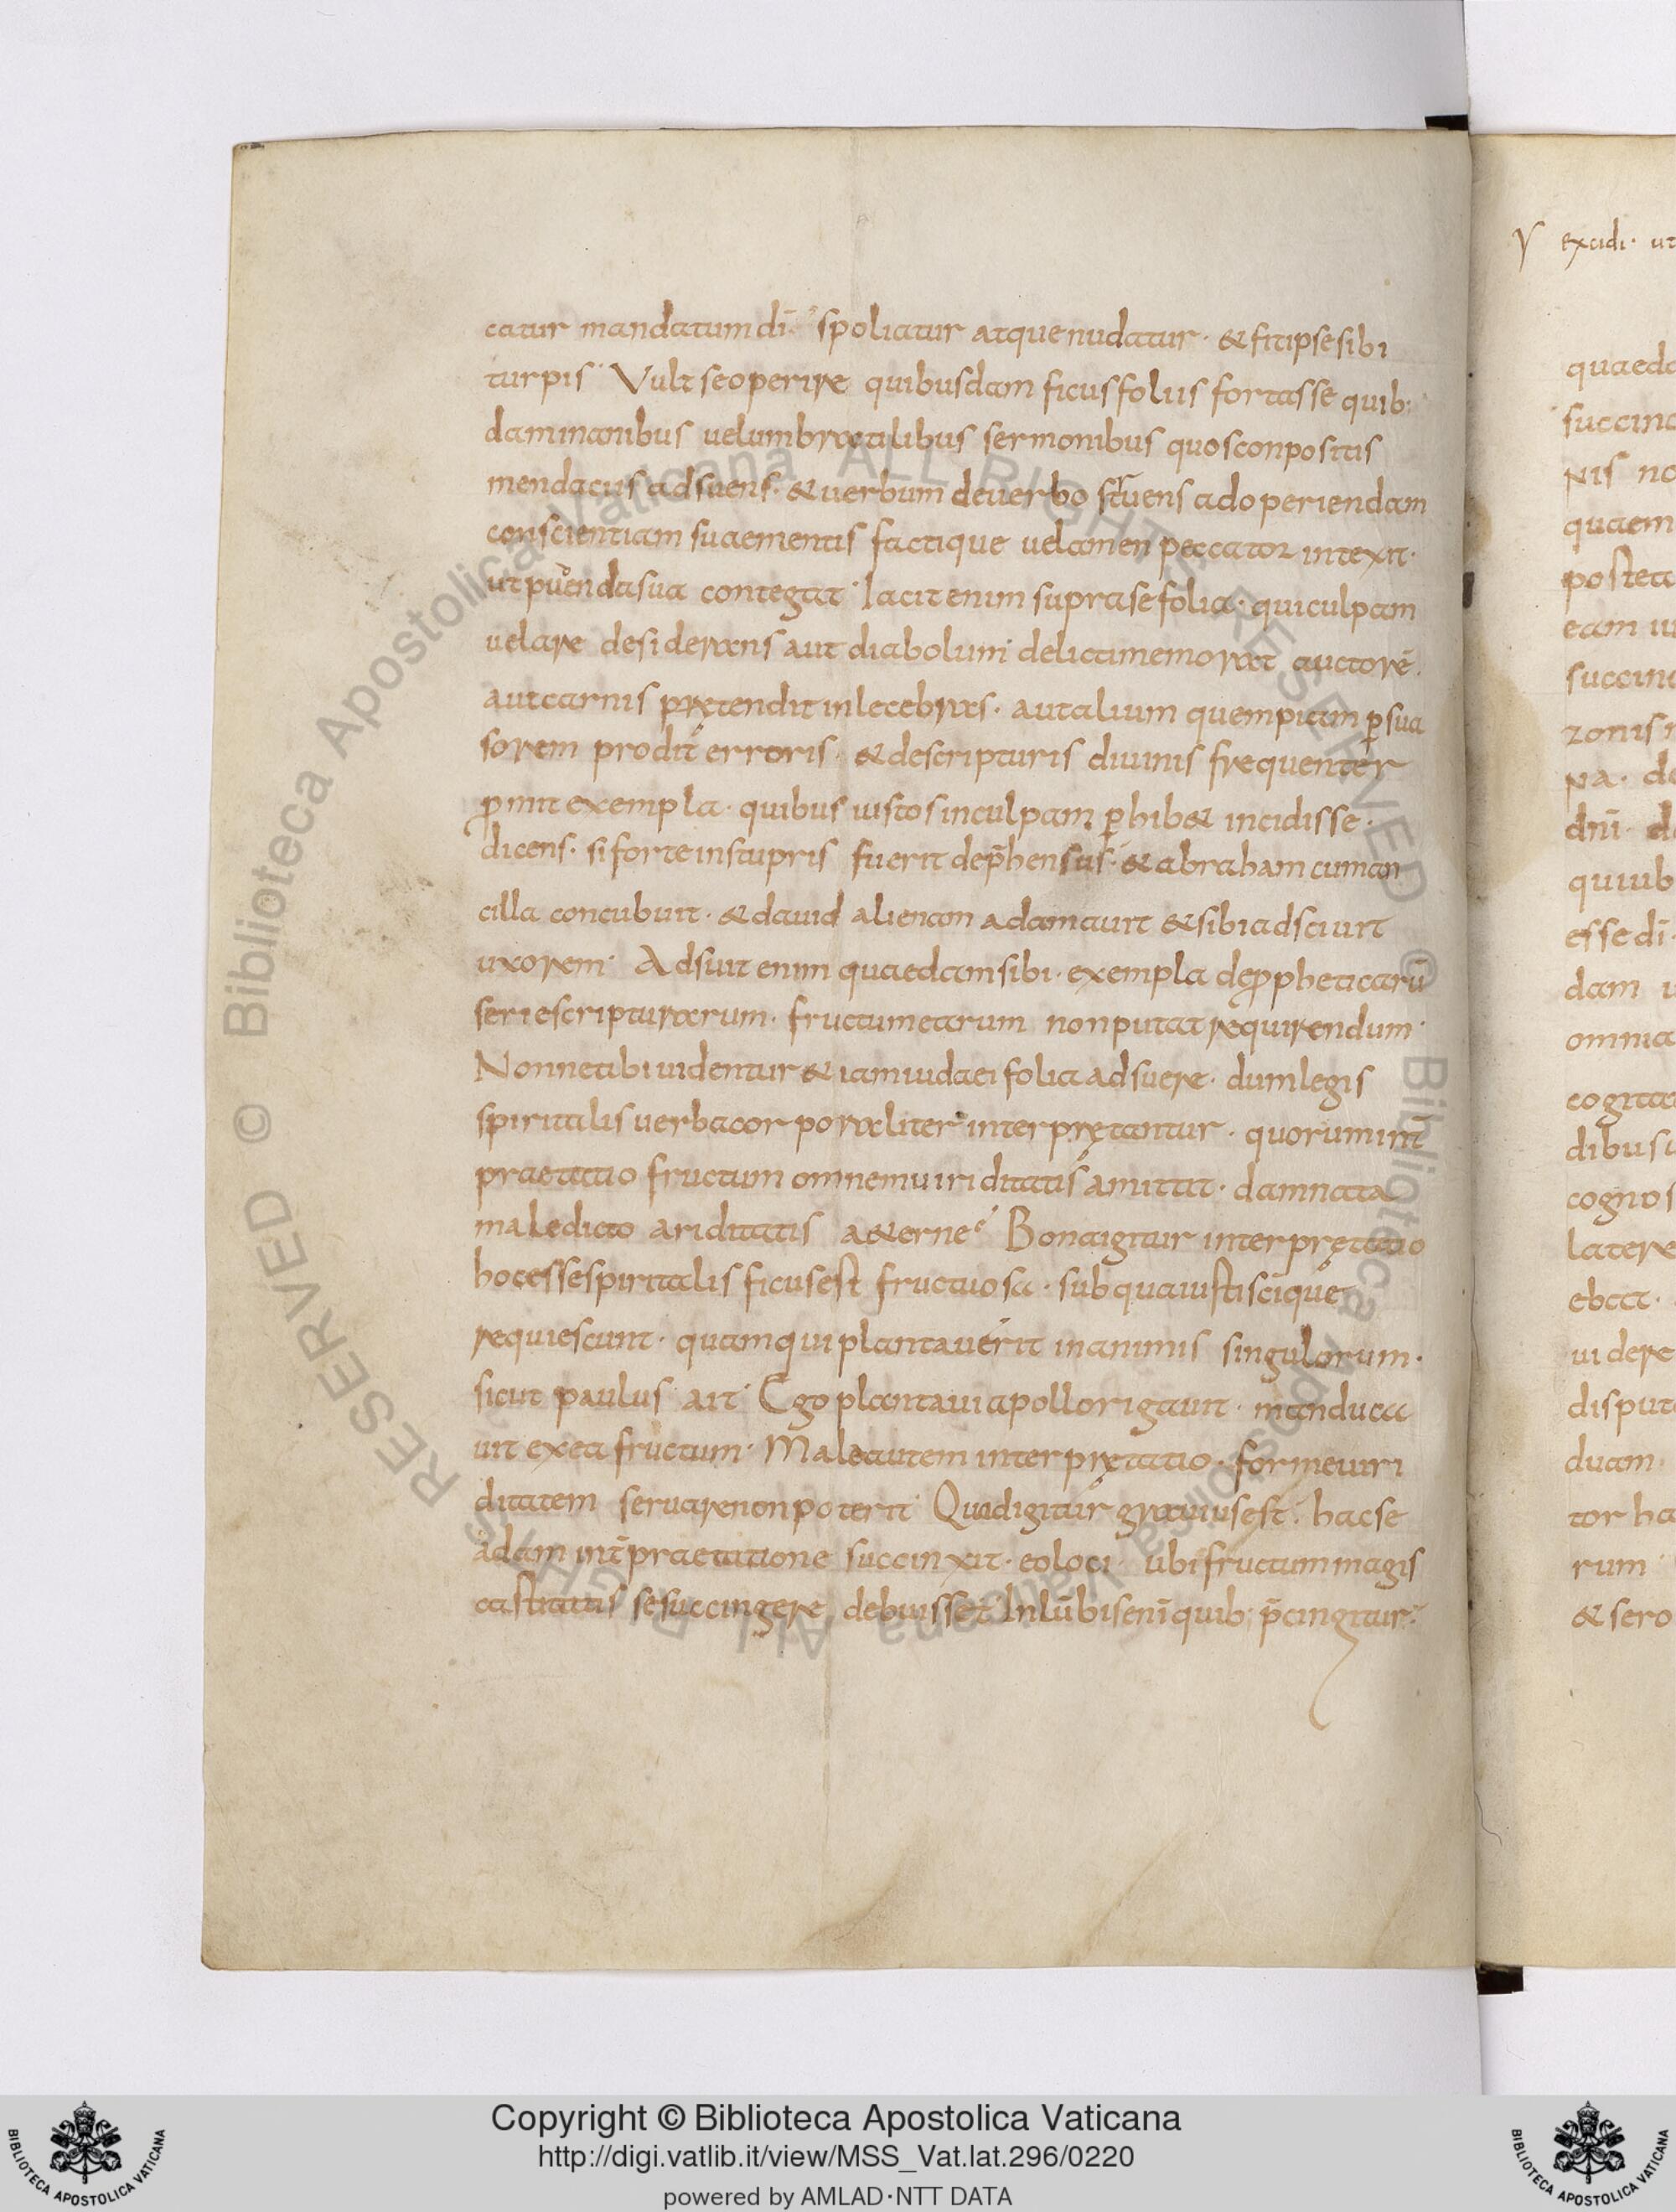 catur mandatum dī· spoliatur atque nudatur· & fit ipse sibi
turpis· Vult se operire quibusdam ficus foliis fortasse quib:
dam inanibus uel umbratilibus sermonibus quos conpositis
mendaciis adsuens· & uerbum de uerbo struens ad operiendam
conscientiam suae mentis factique uelamen peccator intexit·
ut pudenda sua contegat· Iacit enim supra se folia· qui culpam
uelare desiderans aut diabolum delicti memorat auctorē·
aut carnis prętendit inlecebras· aut alium quempiam p̲sua
sorem prodit erroris· & de scripturis diuinis frequenter
p̲mit exempla· quibus iustos in culpam p̲hib& incidisse·
dicens· si forte in stupris fuerit dep̄hensus· & abraham cum an
cilla concubuit· & dauid alienam adamauit & sibi adsciuit
uxorem· Adsuit enim quaedam sibi· exempla de p̲pheticarū
serie scripturarum· fructum earum non putat requirendum·
Nonne tibi uidentur & iam iudaei folia adsuere· dum legis
spiritalis uerba corporaliter interprętantur· quorum int̄
praetatio fructum omnem uiriditatis amittit· damnata
maledicto ariditatis a&erne· Bona igitur interprętatio
hoc esse spiritalis ficus est fructuosa· sub qua iusti sc̄ique
requiescunt· quam qui plantauerit in animis singulorum·
sicut paulus ait· Ego plantaui apollo rigauit· manduca
uit ex ea fructum· Male autem interprętatio· forme uiri
ditatem seruare non poterit· Quid igitur grauius est· hac se
adam int̄praetatione succinxit· eo loci· ubi fructum magis
castitatis se succingere debuisset· In lūbis enī quib: p̄cingitur·
excidi· ut
quaeda
succinc
nis no
quaem
postea
eam ui
succinc
zonis n
na· de
dn̄i· d
qui ub
esse dī·
dam u
omnia
cogita
dibus u
cognos
latere
ebat·
uidere
disput
duam
tor ha
rum
& sero
Copyright © Biblioteca Apostolica Vaticana
http://digi.vatlib.it/view/MSS_Vat.lat.296/0220
powered by AMLAD·NTT DATA
BIBLIOTECA APOSTOLICA VATICANA
BIBLIOTECA APOSTOLICA VATICANA